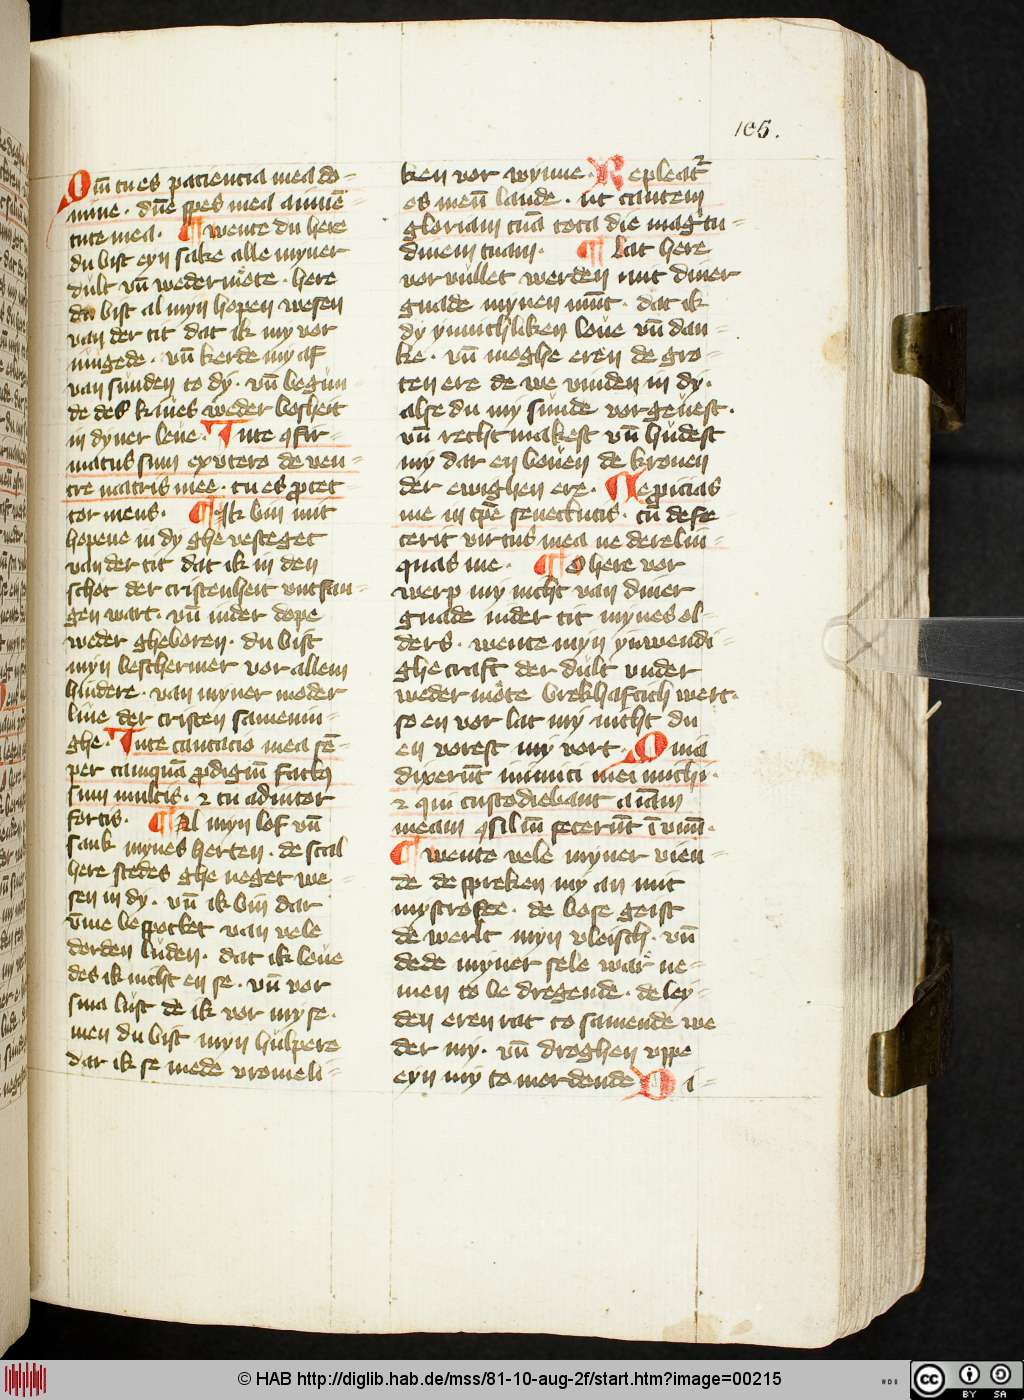 105.
Qm̄ tu es paciencia mea do-
mine · dn̄e spes mea a iuuē-
tute mea · ¶ wente du here
du bist eyn sake alle myner
dult vn̄ wedermote · here
du bist al myn hopen wesen
van der tit dat ik my vor
nıngede · vn̄ kerde my af
van sunden to dy · vn̄ begun-
de des kiues weder bosheit
in dyner leue · In te ꝯfir-
matus sum ex vtero de ven-
tre matris mee · tu es ꝓtec-
tor meus · ¶ Ik bin mit
hopene in dy ghe vesteget
van der tit dat ik in den
schot der cristenheit untfan-
gen wart · vn̄ in der dope
weder gheboren · du bist
myn beschermer vor allem
hindere · van myner moder
liue der cristen samenin-
ghe · In te cantacio mea sē-
per tamquā ꝓdigiū factꝰ
sum multis · ⁊ tu adiutor
fortis · ¶ Al myn lof vn̄
sank mynes herten · de scal
here stedes ghe neget we-
sen in dy · vn̄ ik bin dar
v̄me bespottet van vele
derden luden · dat ik loue
des ik nicht en se · vn̄ vor
sma lust de ik vor my se ·
men du bist myn hulpere
dar ik se mede vromeli-
ken vor wynne · Repleat᷑
os meū laude · ut cantem
gloriam tuā tota die magītu-
dinem tuam · ¶ Lat here
vorvullet werden mit diner
gnade mynen munt · dat ik
dy ynnichliken loue vn̄ dan-
ke · vn̄ moghe eren de gro-
ten ere de we vinden in dy ·
alse du my sunde vorgeuest ·
vn̄ recht makest vn̄ hudest
my dar en bouen de kronen
der ewighen ere · Ne ꝓicias
me in tp̄e senectutis · cū defe-
cerit virtus mea ne derelin-
quas me · ¶ O here vor
werp my nicht van diner
gnade in der tit mynes ol-
ders · wente myn ynwendi-
ghe craft der dult vnder
weder mote brekhaftich wert ·
so en vor lat my nicht du
en vorest my vort · Quia
dixerūt inimici mei michi ·
⁊ qui custodiebant aīam
meam ꝯsiliū fecerūt ī vnū ·
¶ wente vele myner vien-
de de spreken my an mit
mystroste · de bose geist
de werlt myn vleisch · vn̄
dede myner sele war ne-
men to bedregende · de ley-
den eren rat to samende we
der my · vn̄ droghen vppe
eyn my to mordende Di-
© HAB http://diglib.hab.de/mss/81-10-aug-2f/start.htm?image=00215
cc BY SA